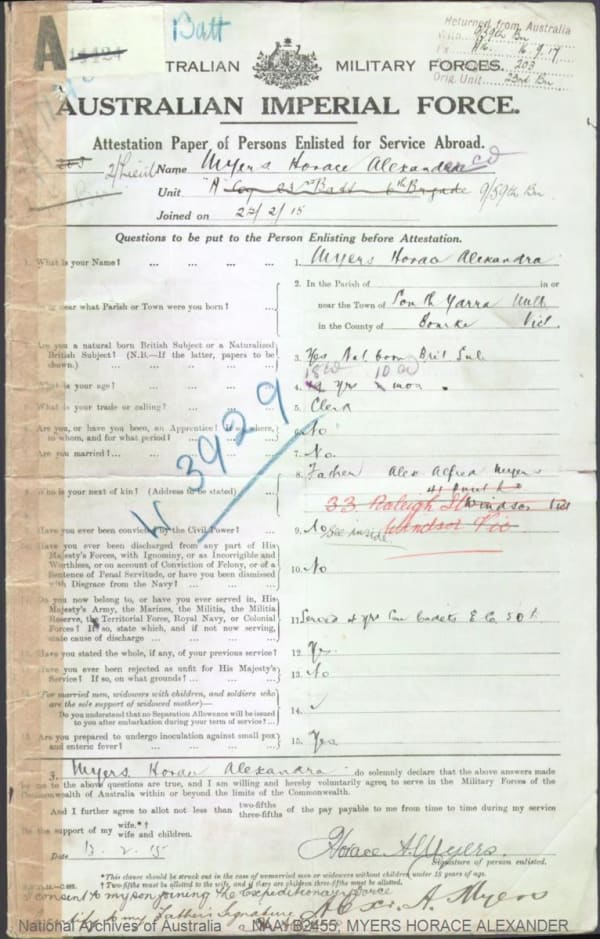 A
Batt
Returned from Australia
9/59th Bn
16.9.17
203
Orig. Unit 23rd Bn
TRALIAN MILITARY FORCES.
AUSTRALIAN IMPERIAL FORCE.
Attestation Paper of Persons Enlisted for Service Abroad.
203 2/Lieut Name Myers Horace Alexander
Unit "A Coy 23rd Batt 6th Brigade 9/59th Bn
Joined on 22/2/15
Questions to be put to the Person Enlisting before Attestation.
1. What is your Name? ... ... ... ... 1. Myers Horace Alexandra
2. In the Parish of in or
near what Parish or Town were you born? ... near the Town of South Yarra Melb
in the County of Bourke Vict.
Are you a natural born British Subject or a Naturalized
British Subject? (N.B.—If the latter, papers to be
shown.) ... ... ... 3. Yes Nat born Brit Sub
What is your age? ... ... ... 4. 18 yrs 10 mon.
What is your trade or calling? ... ... ... 5. Clerk
Are you, or have you been, an Apprentice? If so, where,
to whom, and for what period? ... ... 6. No
Are you married? ... ... ... 7. No.
8. Father Alex Alfred Myers
Who is your next of kin? (Address to be stated) ... Windsor Vict
33 Raleigh St
Windsor Vic
Have you ever been convicted by the Civil Power? ... 9. No See inside
Have you ever been discharged from any part of His
Majesty's Forces, with Ignominy, or as Incorrigible and
Worthless, or on account of Conviction of Felony, or of a
Sentence of Penal Servitude, or have you been dismissed
with Disgrace from the Navy? ... ... 10. No
Do you now belong to, or have you ever served in, His
Majesty's Army, the Marines, the Militia, the Militia
Reserve, the Territorial Force, Royal Navy, or Colonial
Forces? If so, state which, and if not now serving,
state cause of discharge ... ... 11. Served 4 yrs Cadets E Co
Have you stated the whole, if any, of your previous service? 12. Yes.
Have you ever been rejected as unfit for His Majesty's
Service? If so, on what grounds? ... ... 13. No
(For married men, widowers with children, and soldiers who
are the sole support of widowed mother)—
Do you understand that no Separation Allowance will be issued
to you after embarkation during your term of service? ... 14.
Are you prepared to undergo inoculation against small pox
and enteric fever? ... ... 15. Yes
W 3929
Myers Horace Alexandra do solemnly declare that the above answers made
by me to the above questions are true, and I am willing and hereby voluntarily agree to serve in the Military Forces of the
Commonwealth of Australia within or beyond the limits of the Commonwealth.
And I further agree to allot not less than two-fifths three-fifths of the pay payable to me from time to time during my service
for the support of my wife.*† wife and children.
Date 13.2.15 Horace A. Myers.
Signature of person enlisted.
*This clause should be struck out in the case of unmarried men or widowers without children under 18 years of age.
†Two-fifths must be allotted to the wife, and if there are children three-fifths must be allotted.
I consent to my son joining the Expeditionary Force
my Father's Signature Alex. A. Myers
National Archives of Australia NAA: B2455, MYERS HORACE ALEXANDER